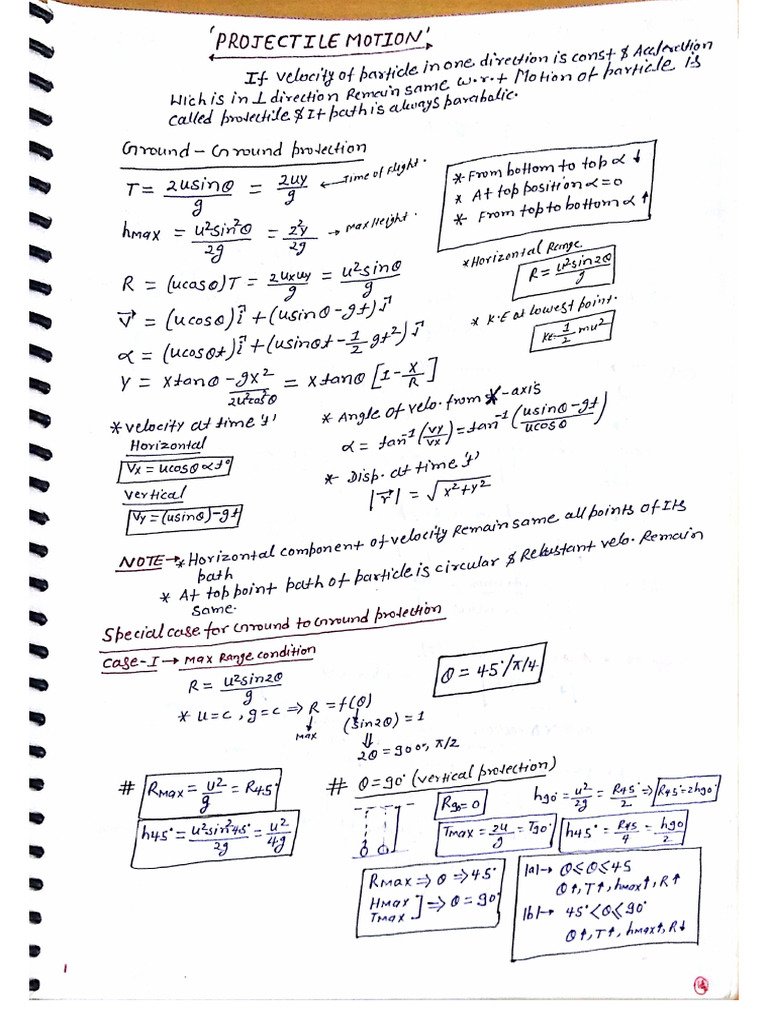 'PROJECTILE MOTION'
If velocity of particle in one direction is const & Acceleration
Wich is in ⊥ direction Remain same w.r.t Motion of particle is
called protectile & It path is always parabolic.
Ground - Ground protection
T = 2usinθ/g = 2uy/g ← Time of Flight.
hmax = u²sin²θ/2g = 2²y/2g → Max Height.
* From bottom to top α ↓
* At top position α = 0
* From top to bottom α ↑
R = (ucosθ)T = 2uxuy/g = u²sinθ/g
* Horizontal Range
R = u²sin2θ/g
v⃗ = (ucosθ)i⃗ + (usinθ-gt)j⃗
* K.E at lowest point.
KE = 1/2 mu²
α = (ucosθt)i⃗ + (usinθt - 1/2 gt²)j⃗
y = xtanθ - gx²/2u²cos²θ = xtanθ [1 - x/R]
* velocity at time 't'
Horizontal
Vx = ucosθ αt°
vertical
Vy = (usinθ)-gt
* Angle of velo. from x-axis
α = tan⁻¹(vy/vx) = tan⁻¹(usinθ-gt/ucosθ)
* Disp. at time 't'
|r⃗| = √x²+y²
NOTE → * Horizontal component of velocity Remain same all points of Its
path
* At top point path of particle is circular & Relustant velo. Remain
same.
Special case for Ground to Ground protection
Case-I → Max Range condition
R = u²sin2θ/g
θ = 45°/π/4
* u=c, g=c ⇒ R = f(θ)
↓ max
(sin2θ) = 1
⇓
2θ = 90°, π/2
# Rmax = u²/g = R45°
h45° = u²sin²45°/2g = u²/4g
# θ = 90° (vertical protection)
R90 = 0
Tmax = 2u/g = T90°
h90° = u²/2g = R45°/2 ⇒ R45° = 2h90°
h45° = R45/4 = h90/2
Rmax ⇒ θ ⇒ 45°
Hmax
Tmax ] ⇒ θ = 90°
|a| → 0≤θ≤45
θ↑, T↑, hmax↑, R↑
|b| → 45°<θ≤90°
θ↑, T↑, hmax↑, R↓
1